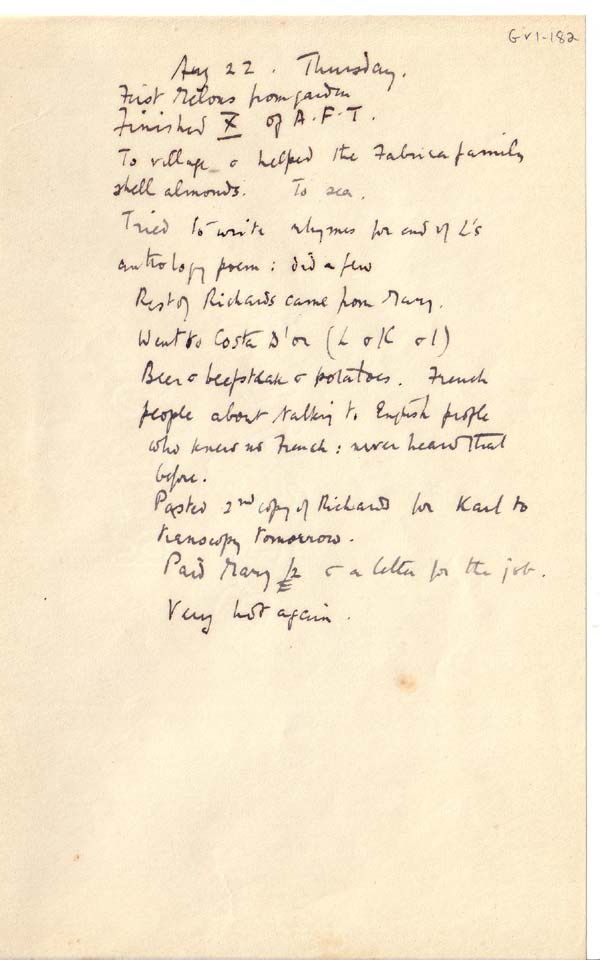 GV1-182
Aug 22. Thursday.
First Melons from garden
Finished X of A.F.T.
To village & helped the Fabrica family
shell almonds. To sea.
Tried to write rhymes for end of L's
anthology poem: did a few
Rest of Richards came from Mary.
Went to Costa D'or (L & K & I)
Beer & beefsteak & potatoes. French
people about talking to English people
who knew no French: never heard that
before.
Pasted 2nd copy of Richards for Karl to
transcopy tomorrow.
Paid Mary & a letter for the job.
Very hot again.